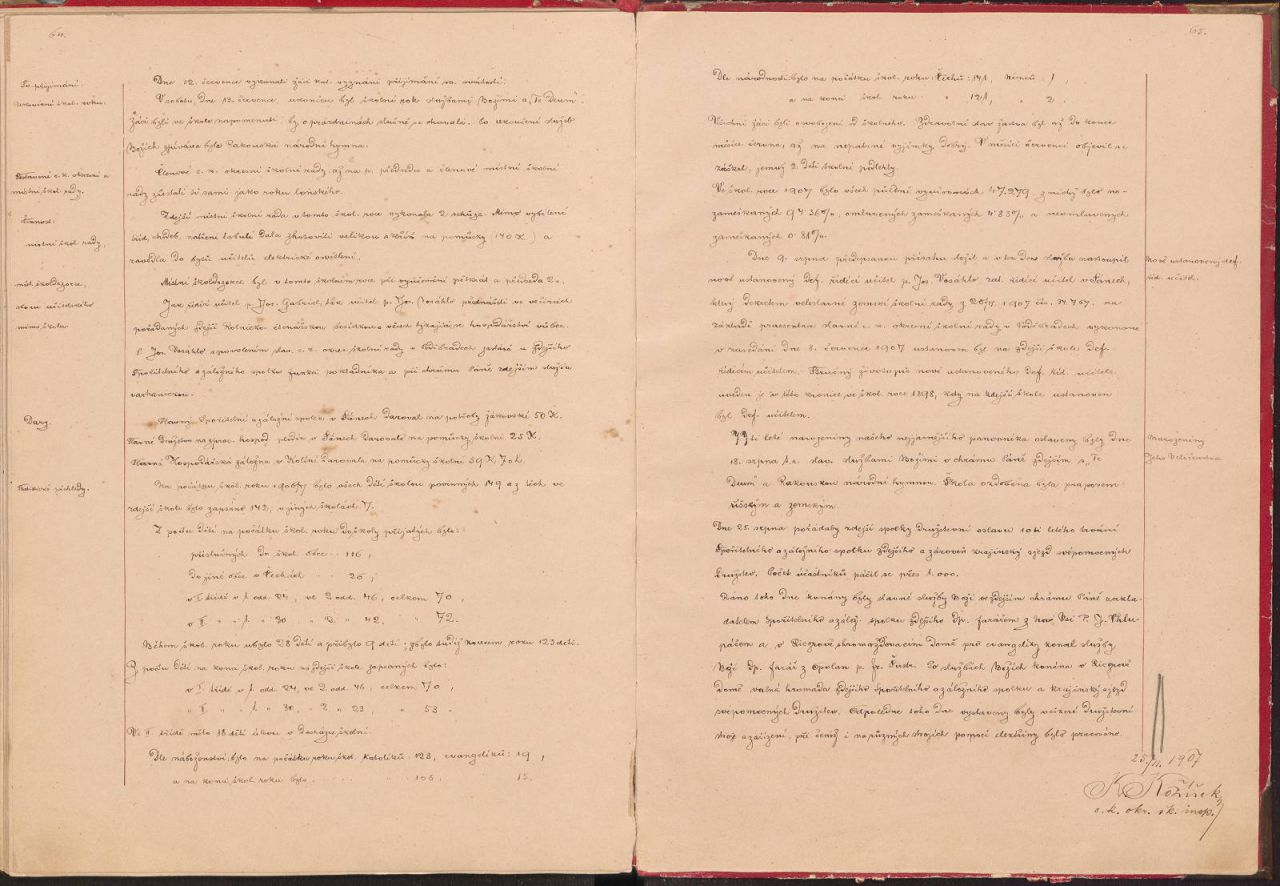 64.
Sv. přijímání.
Ukončení škol. roku.
Dne 12. července vykonali žáci kat. vyznání přijímání sv. svátosti.
V sobotu, dne 13. července, ukončen byl školní rok službami Božími a „Te Deum“.
Žáci byli ve škole napomenuti, by o prázdninách slušně se chovali. Po ukončení služeb
Božích zpívána byla rakouská národní hymna.
Členové c. k. okresní školní rady až na p. předsedu a členové místní školní
rady zůstali ti samí jako roku loňského.
místní škol. rady.
Činnost
místní škol. rady,
Zdejší místní školní rada v tomto škol. roce vykonala 2 schůze. Mimo vybílené
tříd, chodeb, natření tabulí dala zhotoviti velikou skříň na pomůcky (140 K) a
zavedla do bytů učitelů elektrické osvětlení.
míst. škol. dozorce,
sboru učitelského
mimo školu.
Místní škol. dozorce byl v tomto školním roce při vyučování pětkrát a předseda 2x.
Jak řídící učitel p. Jos. Gabriel, tak učitel p. Jos. Vosáhlo přednášeli ve večírcích
pořádaných zdejší Rolnicko-čtenářskou besídkou o věcech týkajících se hospodářství vůbec.
P. Jos. Vosáhlo s povolením slav. c. k. okres. školní rady v Poděbradech zastává u zdejšího
Spořitelního a záložního spolku funkci pokladníka a při chrámu Páně zdejším službu
varhanickou.
Dary.
Slavný Spořitelní a záložní spolek v Pátech daroval na potřeby žákovské 50 K.
Slavné Družstvo na zprac. hospod. plodin v Pátech darovalo na pomůcky školní 25 K.
Slavná Hospodářská záložna v Kolíně darovala na pomůcky školní 59 K 70 h.
Statistické přehledy.
Na počátku škol. roku 1906/7 bylo všech dětí školou povinných 149 a z těch ve
zdejší škole bylo zapsáno 142, v jiných školách 7.
Z počtu dětí na počátku škol. roku do školy přijatých bylo:
příslušných do škol. obce .. 116,
do jiné obce v Čechách . . 26,
v I. třídě v 1. odd. 24, ve 2. odd. 46, celkem 70,
v II. „ „ 1. „ 30 „ 2. „ 42, „ 72.
Během škol. roku ubylo 28 dětí a přibylo 9 dětí; zbylo tudíž koncem roku 123 dětí.
Z počtu dětí na konci škol. roku na zdejší škole zapsaných bylo:
v I. třídě v 1. odd. 24, ve 2. odd. 46, celkem 70,
v II. „ „ 1. „ 30, „ 2. „ 23 „ 53.
Ve II. třídě mělo 18 dětí úlevu v docházce školní.
Dle náboženství bylo na počátku roku škol. katolíků: 123, evangelíků: 19,
a na konci škol. roku bylo . . . . 108 . 15.
65.
Dle národnosti bylo na počátku škol. roku: Čechů: 141, Němců: 1
a na konci škol. roku „ 121, „ 2.
Všichni žáci byli osvobozeni od školného. Zdravotní stav žactva byl až do konce
měsíce června, až na nepatrné výjimky dobrý. V měsíci červenci objevil se
záškrt, jemuž 2 děti školní podlehly.
Ve škol. roce 1907 bylo všech půldní vyučovacích 47.279, z nichž bylo ne-
zameškaných 94·36%, omluvených zameškaných 4·83% a neomluvených
zameškaných 0·81%.
Nově ustanovený def.
říd. učitel.
Dne 9. srpna předepsanou přísahu složil a v ten den službu nastoupil
nově ustanovený def. řídící učitel p. Jos. Vosáhlo zat. řídící učitel v Pátech,
který dekretem veleslavné zemské školní rady z 26/7 1907 čís. 34.767, na
základě praesentace slavné c. k. okresní školní rady v Poděbradech vykonané
v zasedání dne 3. července 1907 ustanoven byl na zdejší škole def.
řídícím učitelem. Stručný životopis nově ustanoveného def. říd. učitele
uveden je v této kronice ve škol. roce 1898, kdy na zdejší škole ustanoven
byl def. učitelem.
Narozeniny
Jeho Veličenstva
77 ti leté narozeniny našeho nejjasnějšího panovníka oslaveny byly dne
18. srpna t. r. slav. službami Božími v chrámu Páně zdejším s „Te
Deum“ a rakouskou národní hymnou. Škola ozdobena byla praporem
říšským a zemským.
Dne 25. srpna pořádaly zdejší spolky družstevní oslavu 10ti letého trvání
Spořitelního a záložního spolku zdejšího a zároveň krajinský sjezd svépomocných
družstev. Počet účastníků páčil se přes 1.000.
Ráno toho dne konány byly slavné služby Boží ve zdejším chrámu Páně zakla-
datelem Spořitelního a zálož. spolku zdejšího dp. farářem z Nové Vsi P. J. Chlu-
páčem a v Riegrově shromažďovacím domě pro evangelíky konal služby
Boží dp. farář z Opolan p. Fr. Šusta. Po službách Božích konána v Riegrově
domě valná hromada zdejšího Spořitelního a záložního spolku a krajinský sjezd
svépomocných družstev. Odpoledne toho dne vystaveny byly veškeré družstevní
stroje a zařízení, při čemž i na různých strojích pomocí elektřiny bylo pracováno.
25/11. 1907
K. Kožíšek,
c. k. okr. šk. insp.